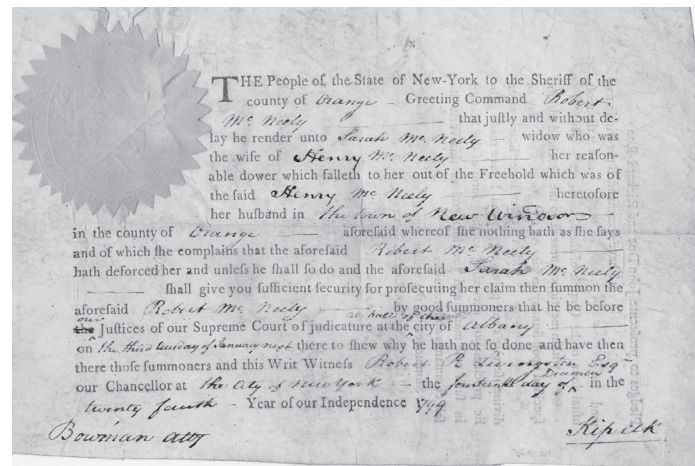 THE People of the State of New-York to the Sheriff of the
county of Orange – Greeting Command Robert
Mc Neely that justly and without de-
lay he render unto Sarah Mc Neely widow who was
the wife of Henry Mc Neely her reason-
able dower which falleth to her out of the Freehold which was of
the said Henry Mc Neely heretofore
her husband in the town of New Windsor
in the county of Orange aforesaid whereof she nothing hath as she says
and of which she complains that the aforesaid Robert Mc Neely
hath deforced her and unless he shall so do and the aforesaid Sarah Mc Neely
shall give you sufficient security for prosecuting her claim then summon the
aforesaid Robert Mc Neely by good summoners that he be before
our the Justices of our Supreme Court of judicature at the city hall of the city of Albany
on the third tuesday of January next there to shew why he hath not so done and have then
there those summoners and this Writ Witness Robert R Livingston Esqr
our Chancellor at the City of New York – the fourteenth day of in the
twenty fourth – Year of our Independence 1799
Bowman atty
Kip clk